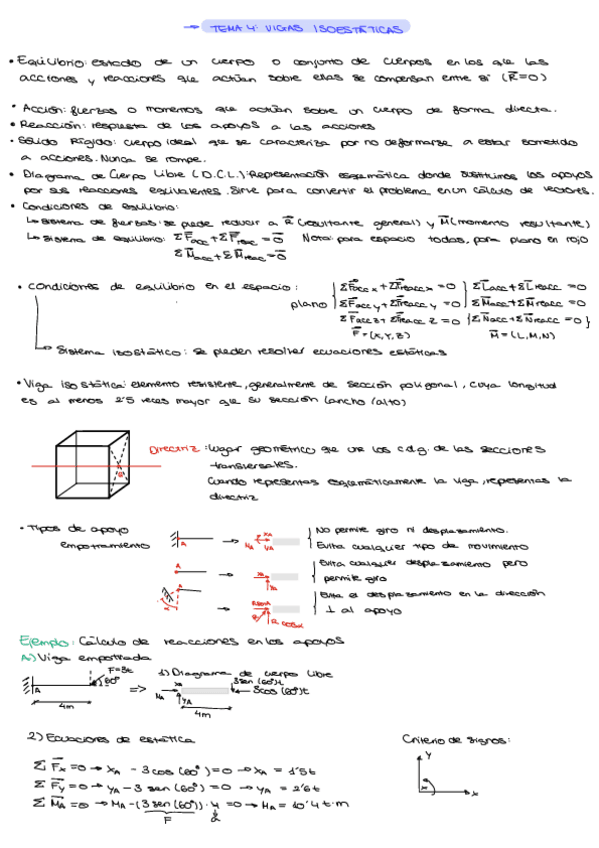 → TEMA 4: VIGAS ISOESTÁTICAS
• Equilibrio: estado de un cuerpo o conjunto de cuerpos en los que las
acciones y reacciones que actúan sobre ellas se compensan entre sí (R=0)
• Acción: fuerzas o momentos que actúan sobre un cuerpo de forma directa.
• Reacción: respuesta de los apoyos a las acciones
• Sólido Rígido: cuerpo ideal que se caracteriza por no deformarse a estar sometido
a acciones. Nunca se rompe.
• Diagrama de Cuerpo Libre (D.C.L.): Representación esquemática donde sustituimos los apoyos
por sus reacciones equivalentes. Sirve para convertir el problema en un cálculo de vectores.
• Condiciones de equilibrio:
↳ sistema de fuerzas: se puede reducir a R (resultante general) y M (momento resultante)
↳ Sistema de equilibrio: ΣFacc + ΣFreac = 0 Nota: para espacio todas, para plano en rojo
ΣMacc + ΣMreac = 0
• Condiciones de equilibrio en el espacio: ΣFacc x + ΣFreacc x = 0 ΣLacc + ΣLreacc = 0
plano ΣFacc y + ΣFreacc y = 0 ΣMacc + ΣMreacc = 0
ΣFacc z + ΣFreacc z = 0 ΣNacc + ΣNreacc = 0
F = (X,Y,Z) M = (L,M,N)
↳ Sistema isostático: se pueden resolver ecuaciones estáticas
• Viga isostática: elemento resistente, generalmente de sección poligonal, cuya longitud
es al menos 2'5 veces mayor que su sección (ancho/alto)
Directriz: lugar geométrico que une los c.d.g. de las secciones
transversales.
Cuando representas esquemáticamente la viga, representas la
directriz
• Tipos de apoyo
empotramiento
No permite giro ni desplazamiento.
Evita cualquier tipo de movimiento
Evita cualquier desplazamiento pero
permite giro
Evita el desplazamiento en la dirección
⊥ al apoyo
Ejemplo: Cálculo de reacciones en los apoyos
A) Viga empotrada
1) Diagrama de cuerpo libre
F=3t
60°
A
4m
=>
XA
MA
YA
3 sen (60°)t
3cos (60°)t
4m
2) Ecuaciones de estática
Criterio de signos:
Y
X
ΣFx = 0 → XA - 3cos (60°) = 0 → XA = 1'5t
ΣFy = 0 → YA - 3 sen (60°) = 0 → YA = 2'6t
ΣMA = 0 → MA - (3 sen (60°)) · 4 = 0 → MA = 10'4 t·m
F d